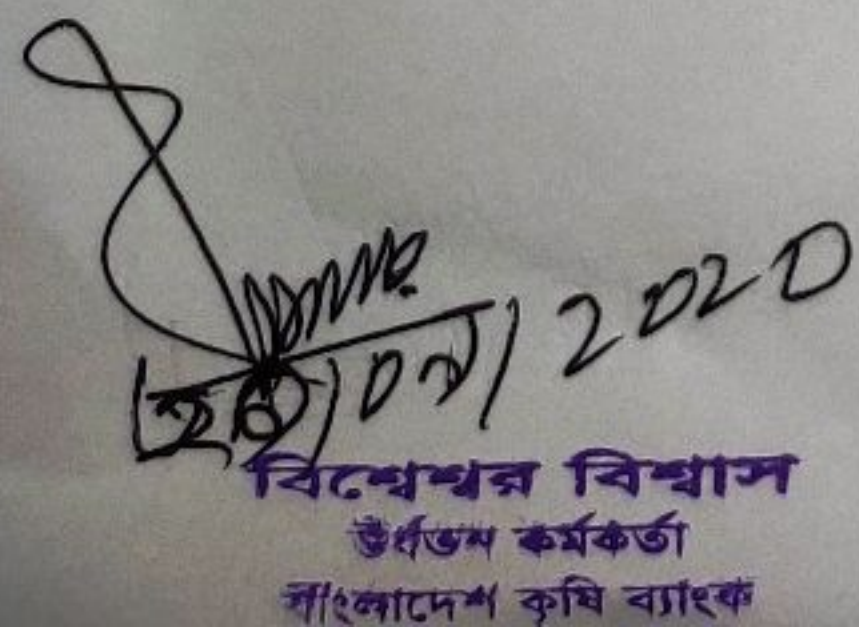 ০৯/2020
বিশ্বেশ্বর বিশ্বাস
উর্ধতন কর্মকর্তা
বাংলাদেশ কৃষি ব্যাংক